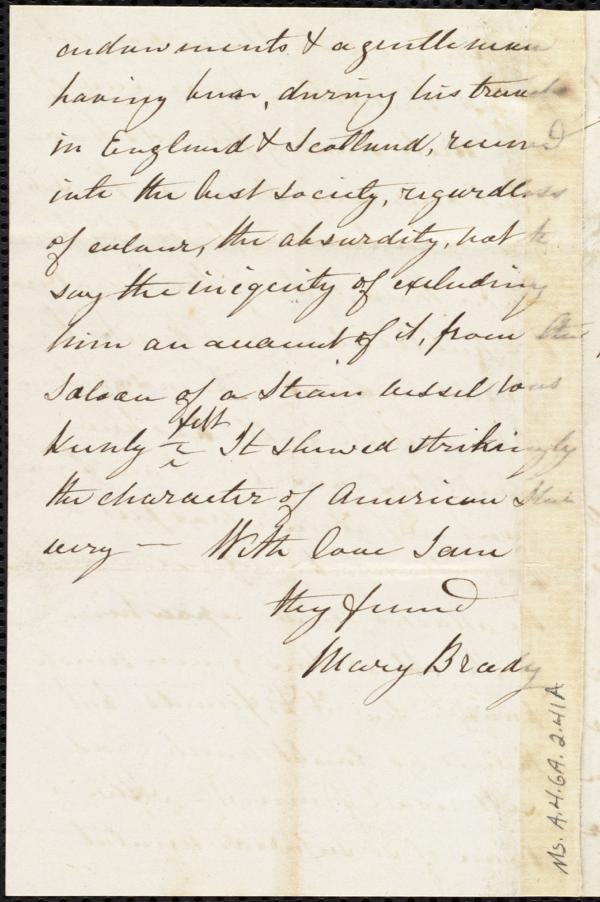 endowments & a gentleman
having been, during his travels
in England & Scotland, received
into the best society, regardless
of colour, the absurdity, not to
say the iniquity of excluding
him on account of it, from the
Saloon of a Steam vessel was
keenly felt It shewed strikingly
the character of American Sla
very — With love I am
thy friend
Mary Brady
Ms. A.4.6A.2.41A